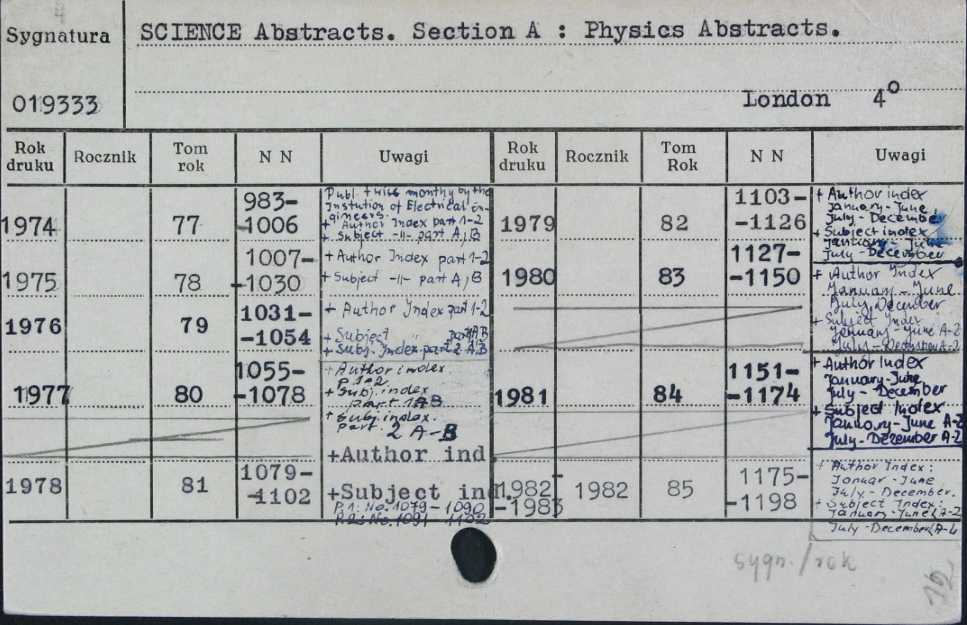 Sygnatura
SCIENCE Abstracts. Section A : Physics Abstracts.
019333
London 4°
Rok druku
Rocznik
Tom rok
N N
Uwagi
1974
77
983-
-1006
Publ. twice monthly by the
Instution of Electrical En-
gineers.
+ Author Index part 1-2
+ Subject -||- part A, B
1975
78
1007-
-1030
+ Author Index part 1-2
+ Subject -||- part A, B
1976
79
1031-
-1054
+ Author Index part 1-2
+ Subject " part A B
+ Subj. Index part 2 A.B
1977
80
1055-
-1078
+ Author index.
p. 1-2
+ Subj. index
part. 1AB
+ Subj. index.
part. 2 A-B
1978
81
1079-
-1102
+Author ind.
+Subject ind.
P.1: No. 1079-1090
P.2: No. 1091-1102
Rok druku
Rocznik
Tom Rok
N N
Uwagi
1979
82
1103-
-1126
+ Author index
January-June
July-December
+ Subject index
January-June
July-December
1980
83
1127-
-1150
+ Author Index
January-June
July, December
+ Subject Index
January-June A-Z
1981
84
1151-
-1174
+ Author Index
January-June
July-December
+ Subject Index
January-June A-Z
July-December A-Z
1982-
-1983
1982
85
1175-
-1198
+ Author Index:
Januar-June
July-December.
+ Subject Index:
January-June (A-Z
July-December (A-Z
sygn./rok
12